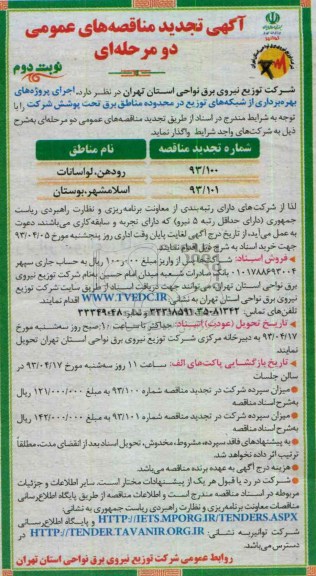 آگهی تجدید مناقصه‌های عمومی
دو مرحله‌ای
نوبت دوم
شرکت توزیع نیروی برق نواحی استان تهران در نظر دارد، اجرای پروژه‌های
بهره‌برداری از شبکه‌های توزیع در محدوده مناطق برق تحت پوشش شرکت را با
توجه به شرایط مندرج در اسناد از طریق تجدید مناقصه‌های عمومی دو مرحله‌ای به‌شرح
ذیل به شرکت‌های واجد شرایط واگذار نماید.
شماره تجدید مناقصه
نام مناطق
۹۳/۱۰۰
رودهن، لواسانات
۹۳/۱۰۱
اسلامشهر، بوستان
لذا از شرکت‌های دارای رتبه‌بندی از معاونت برنامه‌ریزی و نظارت راهبردی ریاست
جمهوری (دارای حداقل رتبه ۵ نیرو) که دارای تجربه و سابقه کاری می‌باشند دعوت
به عمل می‌آید، از تاریخ درج آگهی لغایت پایان وقت اداری روز پنجشنبه مورخ ۹۳/۰۴/۰۵
جهت خرید اسناد به شرح ذیل اقدام نمایند.
فروش اسناد: شرکت‌ها قبل از واریز مبلغ ریال به حساب جاری سپهر
۰۱۰۱۷۸۸۶۹۳۰۰۴ بانک صادرات شعبه میدان امام حسین به‌نام شرکت توزیع نیروی
برق نواحی استان تهران می‌توانند جهت دریافت اسناد از طریق سایت شرکت توزیع
نیروی برق نواحی استان تهران به نشانی: WWW.TVEDC.IR اقدام نمایند.
تلفن‌های تماس:
تاریخ تحویل (عودت) اسناد: حداکثر تا ساعت ۱۰ صبح روز سه‌شنبه مورخ
۹۳/۰۴/۱۷ به دبیرخانه مرکزی شرکت توزیع نیروی برق نواحی استان تهران تحویل
نمایند.
تاریخ بازگشایی پاکت‌های الف: ساعت ۱۱ روز سه‌شنبه مورخ ۹۳/۰۴/۱۷ در
سالن جلسات
میزان سپرده شرکت در تجدید مناقصه شماره ۹۳/۱۰۰ به مبلغ ۱۲۱/۰۰۰/۰۰۰ ریال
به‌شرح اسناد مناقصه
میزان سپرده شرکت در تجدید مناقصه شماره ۹۳/۱۰۱ به مبلغ ۱۴۲/۰۰۰/۰۰۰ ریال
به‌شرح اسناد مناقصه
به پیشنهادهای فاقد سپرده، مشروط، مخدوش، تحویل اسناد بعد از انقضای مدت، مطلقاً
ترتیب اثر داده نخواهد شد.
هزینه درج آگهی به عهده برنده مناقصه می‌باشد.
شرکت در رد یا قبول هر یک از پیشنهادات مختار است. سایر اطلاعات و جزئیات
مربوطه در اسناد مناقصه مندرج است و اطلاعات مناقصه از طریق پایگاه اطلاع‌رسانی
مناقصات معاونت برنامه‌ریزی و نظارت راهبردی ریاست جمهوری به نشانی:
HTTP://IETS.MPORG.IR/TENDERS.ASPX و پایگاه اطلاع‌رسانی
شرکت توانیر به نشانی: HTTP://TENDER.TAVANIR.ORG.IR در
دسترس می‌باشد.
روابط عمومی شرکت توزیع نیروی برق نواحی استان تهران